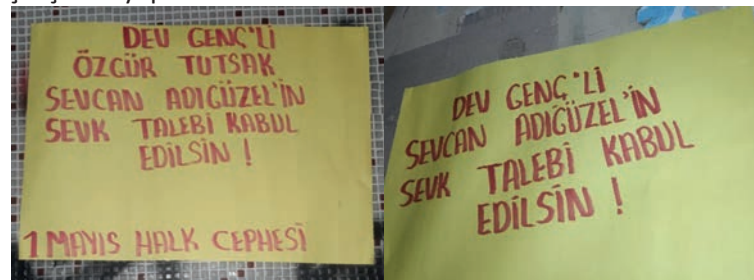 DEV GENÇ'Lİ
ÖZGÜR TUTSAK
SEVCAN ADIGÜZEL'İN
SEVK TALEBİ KABUL
EDİLSİN !
1 MAYIS HALK CEPHESİ
DEV GENÇ'Lİ
SEVCAN ADIGÜZEL'İN
SEVK TALEBİ KABUL
EDİLSİN !